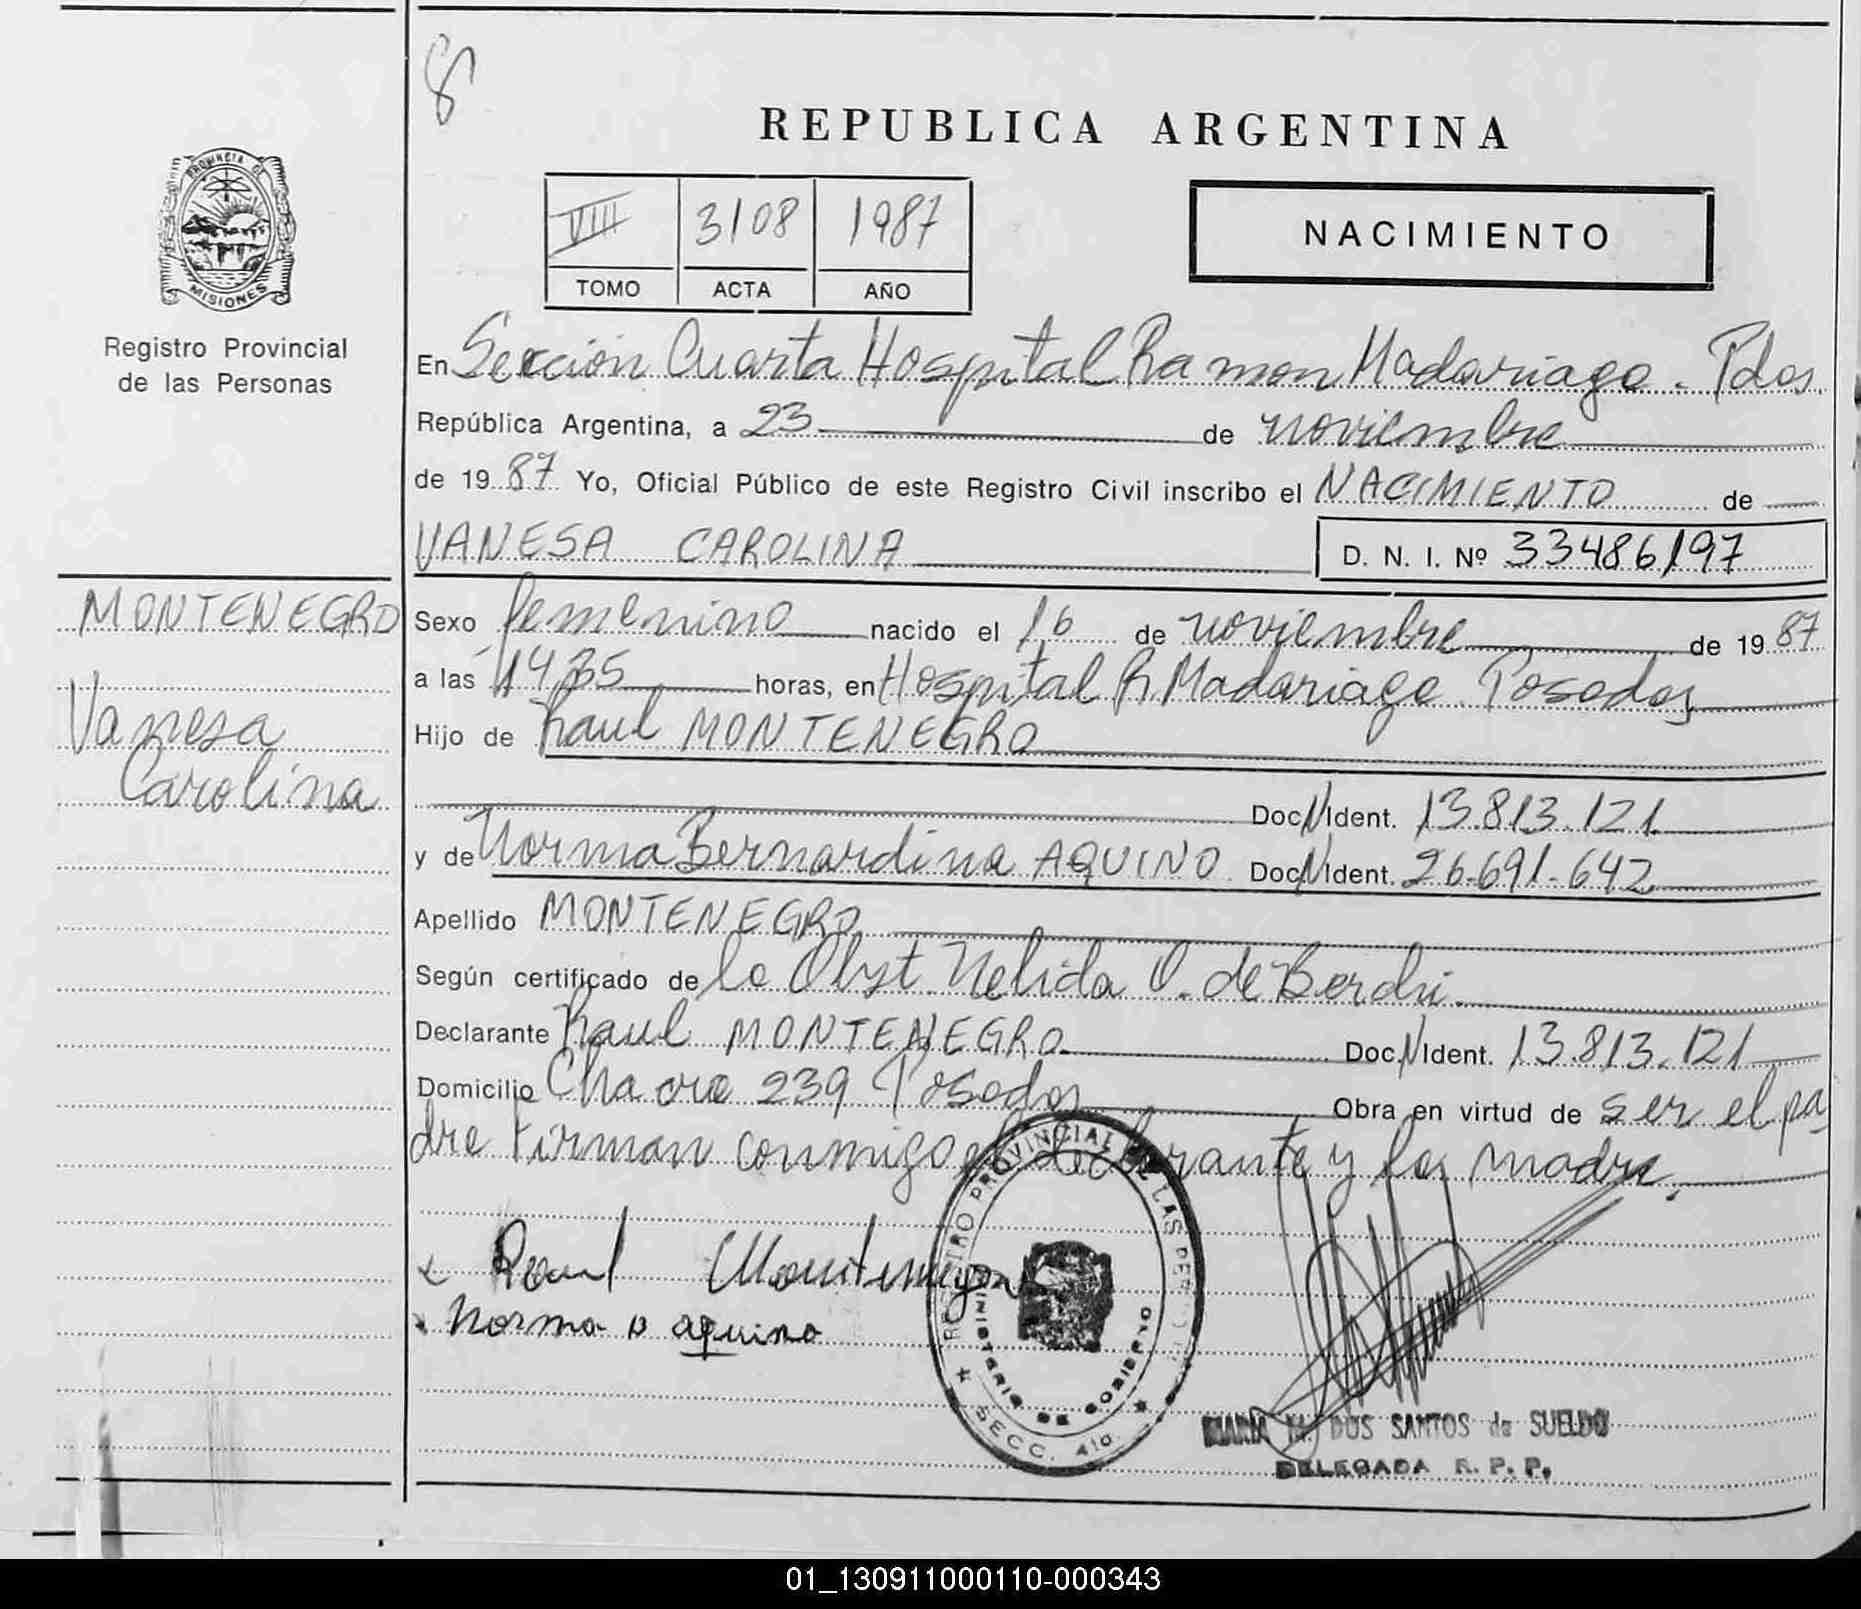 8
REPUBLICA ARGENTINA
VIII 3108 1987
TOMO ACTA AÑO
NACIMIENTO
PROVINCIA DE
MISIONES
Registro Provincial
de las Personas
En Sección Cuarta Hospital Ramon Madariaga. Pdas.
República Argentina, a 23 de noviembre
de 19 87 Yo, Oficial Público de este Registro Civil inscribo el NACIMIENTO de
VANESA CAROLINA D. N. I. Nº 33486197
MONTENEGRO
Vanesa
Carolina
Sexo femenino nacido el 16 de noviembre de 19 87
a las 14,35 horas, en Hospital R. Madariaga. Posadas
Hijo de Raul MONTENEGRO
Doc. N Ident. 13.813.121
y de Norma Bernardina AQUINO Doc. N Ident. 26.691.642
Apellido MONTENEGRO
Según certificado de la Obst. Nelida O. de
Declarante Raul MONTENEGRO Doc. N Ident. 13.813.121
Domicilio Chacra 239 Posadas Obra en virtud de ser el pa
dre firman conmigo el declarante y la madre.
Raul Montenegro
Norma B aquino
REGISTRO PROVINCIAL DE LAS PERSONAS
MINISTERIO DE GOBIERNO
SECC. 4ta.
MARIA M. DOS SANTOS de SUELDO
DELEGADA R. P. P.
01_130911000110-000343